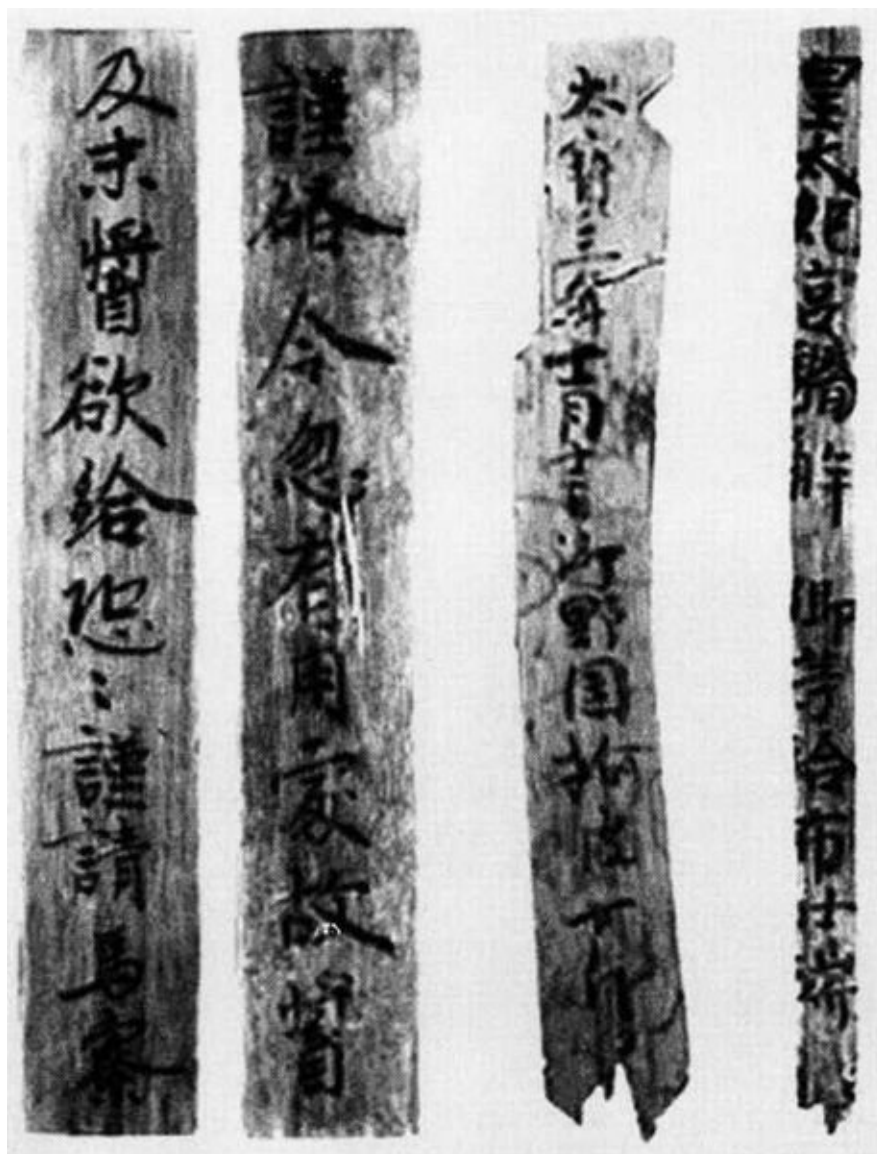 皇太妃宮職解 卿等給布廿端
大寶三年十一月十二日御野国楡皮十斤
謹啓今忽有用處故醤
及末醤欲給恐々謹請馬寮